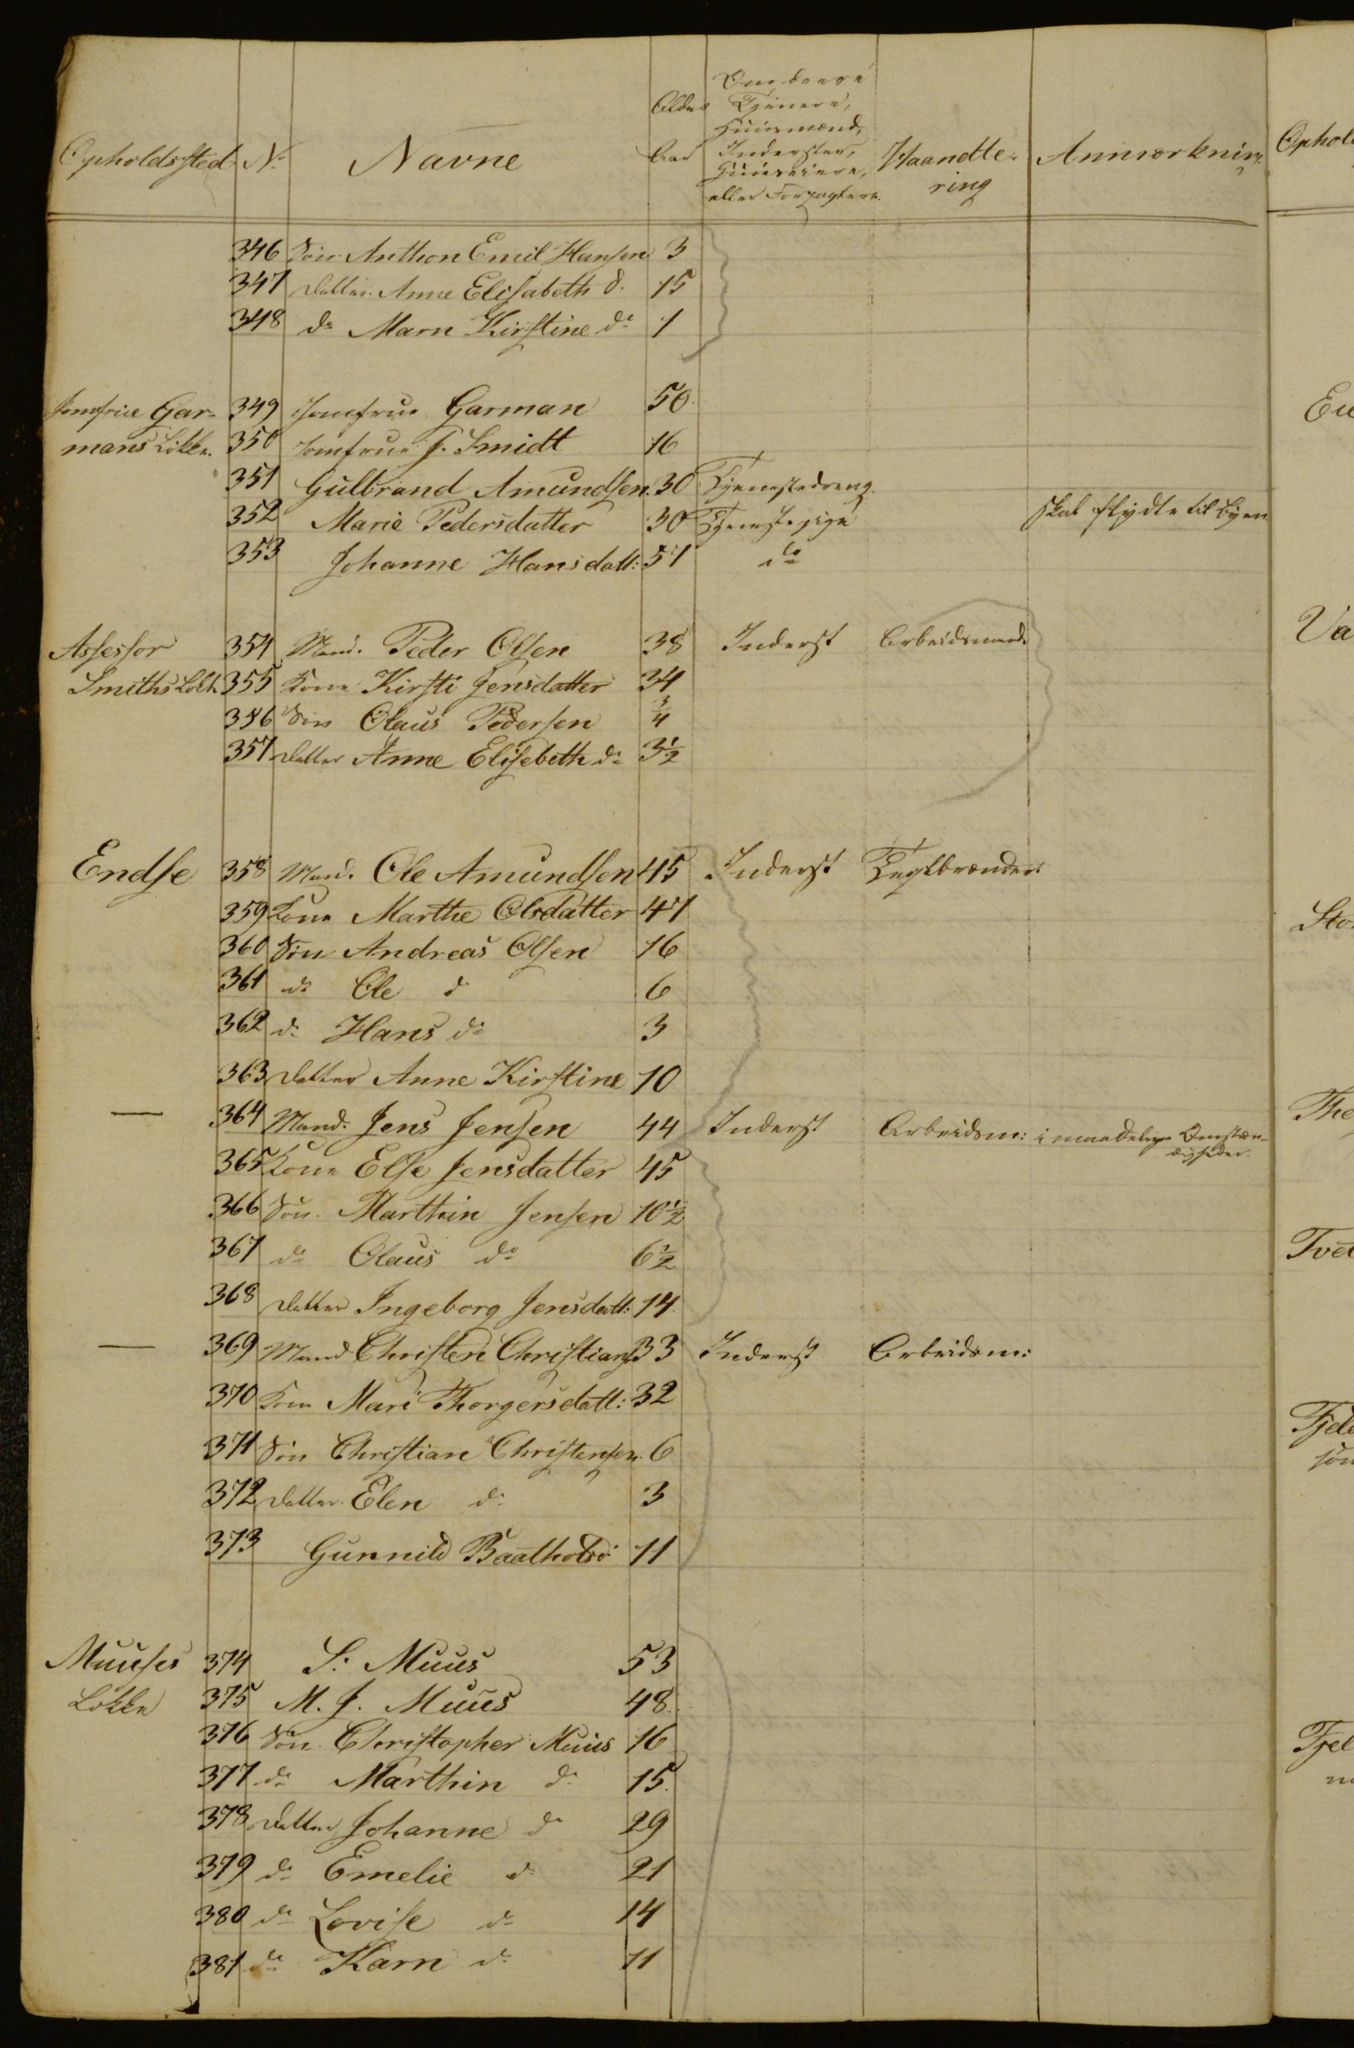 Opholdssted No Navne Alder Aar Om de ere Tjenere, Huusmænd, Inderster, Huuseiere, eller Forpagtere. Haandtering Anmærkning
346 Søn Anthon Emil Hansen 3
347 Datter Anne Elisabeth do 15
348 do Marn Kirstine do 1
Jomfrue Gar- 349 Jomfrue Garman 50
mans Løkke. 350 Jomfrue J. Smidt 16
351 Gulbrand Amundsen 30 Tjenestedreng.
352 Marie Pedersdatter 30 Tjenestepige skal flydte til Byen
353 Johanne Hansdatt: 51 do
Assessor 354 Mand. Peder Olsen 38 Inderst Arbeidsmand.
Smiths Løk. 355 Kone Kirsti Jensdatter 34
356 Søn Olaus Pedersen 3/4
357 Datter Anne Elisebeth do 3 1/2
Endse 358 Mand. Ole Amundsen 45 Inderst Teglbrænder
359 Kone Marthe Olsdatter 47
360 Søn Andreas Olsen 16
361 do Ole do 6
362 do Hans do 3
363 Datter Anne Kirstine 10
— 364 Mand. Jens Jensen 44 Inderst Arbeidsm: i maadelige Omstæn-
digheder.
365 Kone Else Jensdatter 45
366 Søn. Marthin Jensen 10 1/2
367 do Olaus do 6 1/2
368 Datter Ingeborg Jensdatt: 14
— 369 Mand Christen Christians 33 Inderst Arbeidsm:
370 Kone Mari Thorgersdatt: 32
371 Søn Christian Christensen 6
372 Datter Elen do 3
373 Gunnild 11
Muuses 374 S: Muus 53
Løkke 375 M. J. Muus 48
376 Søn Christopher Muus 16
377 do Marthin do 15
378 Datter Johanne do 29
379 do Emelie do 21
380 do Lovise do 14
381 do Karn do 11
Ophol
Va
Sto
The
Tvet
Fjel